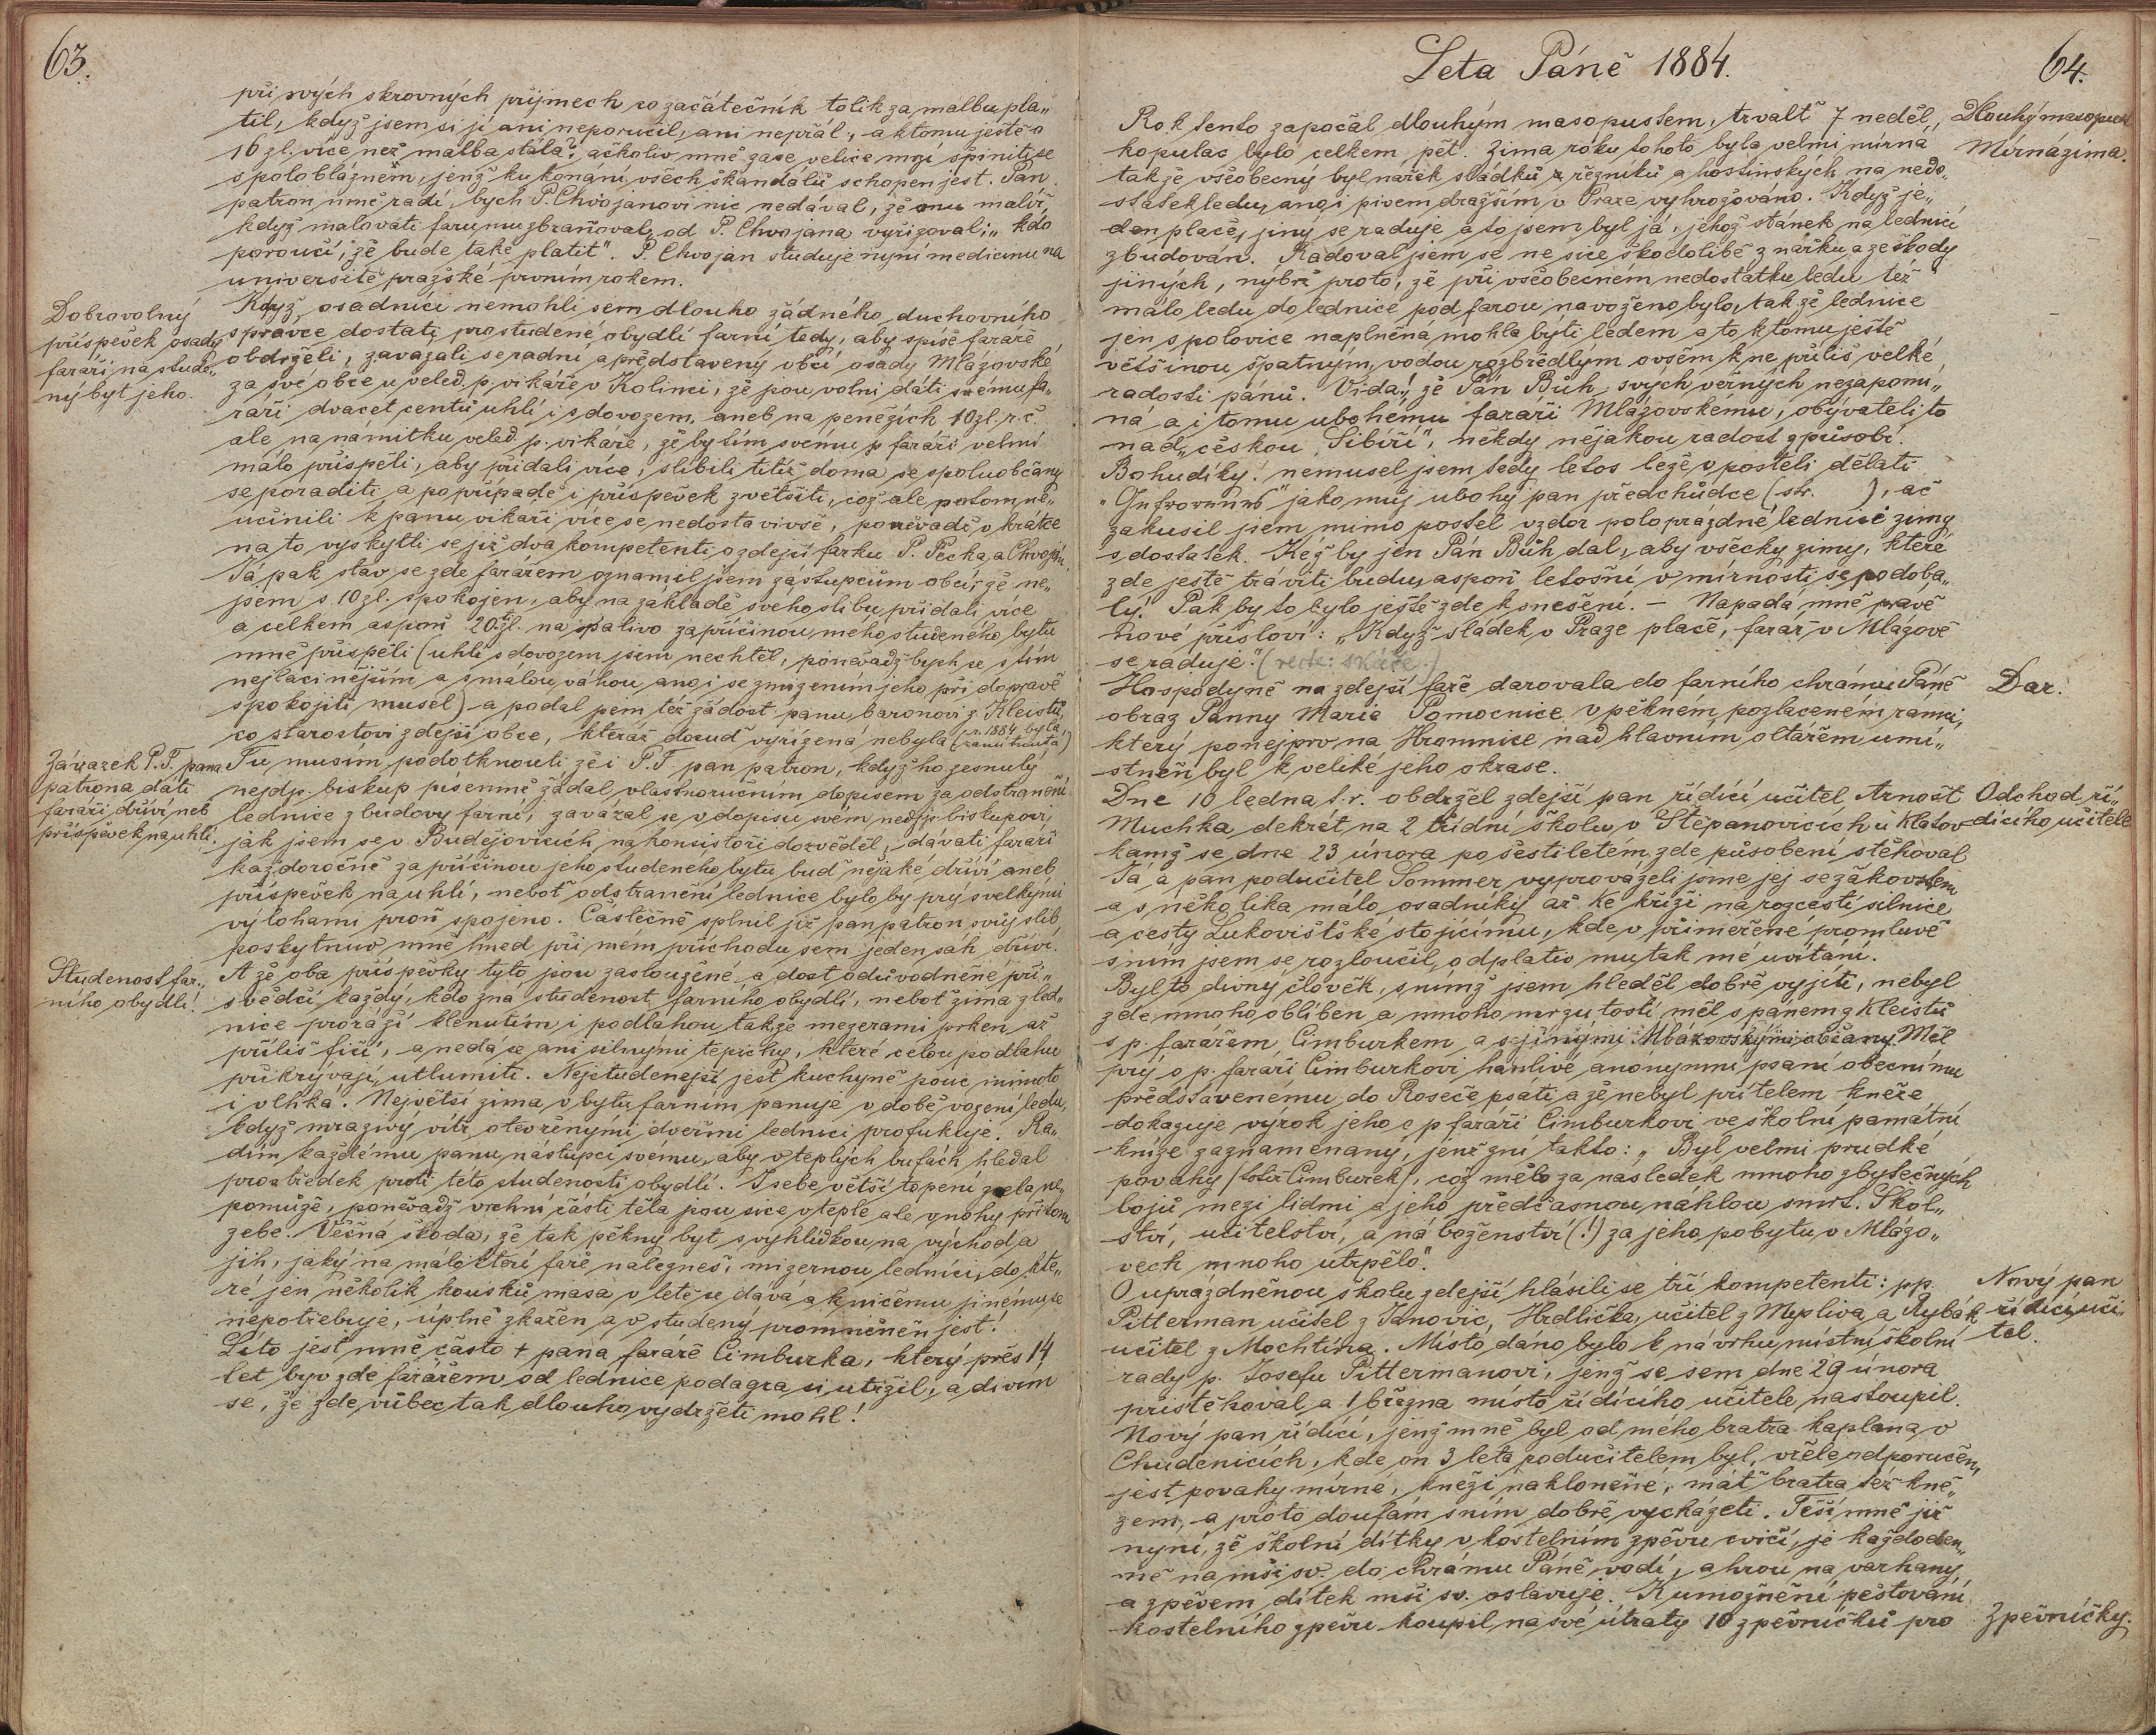 63.
při svých skrovných příjmech co začátečník tolik za malbu pla„
til, když jsem si ji ani neporučil, ani nepřál, a k tomu ještě o
16 zl. více než malba stála? ačkoliv mně zase velice mrzí špiniti se
s poloblázněm, jenž ku konání všech skandálů schopen jest. Pan
patron mně radí, bych P. Chvojanovi nic nedával, že mu malíř,
když malovati faru mu zbraňoval, od P. Chvojana vyřizovali „kdo
poroučí, že bude také platit“. P. Chvojan studuje nyní medicinu na
universitě pražské prvním rokem.
Dobrovolný
příspěvek osady
faráři na stude„
ný byt jeho.
Když osadníci nemohli sem dlouho žádného duchovního
správce dostati pro studené obydlí farní tedy, aby spíše faráře
obdrželi, zavázali se radní a představený obcí osady Mlázovské
za své obce u veled. p. vikáře v Kolinci, že jsou volni dáti svému fa„
ráři dvacet centů uhlí i s dovozem, aneb na penězích 10 zl. r. č.
ale na námitku veled. p. vikáře, že by tím svému p. faráři velmi
málo přispěli, aby přidali více, slíbili titíž doma se spoluobčany
se poraditi a po případě i příspěvek zvětšiti, což ale potom ne„
učinili k panu vikáři více se nedostavivše, poněvadž v krátce
na to vyskytli se již dva kompetenti o zdejší farku P. Pecka a Chvojan.
Já pak stav se zde farářem oznámil jsem zástupcům obcí, že ne„
jsem s 10 zl. spokojen, aby na základě svého slibu přidali více
a celkem aspoň 20 zl. na palivo za příčinou mého studeného bytu
mně přispěli (uhlí s dovozem jsem nechtěl, poněvadž bych se s tím
nejlacinějším a s malou váhou anoi se zmizením jeho při dopravě
spokojiti musel) a podal jsem též žádost panu baronovi z Kleistů,
co starostovi zdejší obce, kteráž dosud vyřízená nebyla (r. 1884 byla zamítnuta)
Závazek P. T. pana
patrona dáti
faráři dříví neb
příspěvek na uhlí.
Tu musím podotknouti že i P. T. pan patron, když ho zesnulý
nejdp. biskup písemně žádal vlastnoručním dopisem za odstranění
lednice z budovy farní, zavázal se v dopisu svém nejdp. biskupovi,
jak jsem se v Budějovicích na konsistoři dozvěděl, dávati faráři
každoročně za příčinou jeho studeného bytu buď nějaké dříví aneb
příspěvek na uhlí, neboť odstranění lednice bylo by prý s velkými
výlohami proň spojeno. Částečně splnil již pan patron svůj slib
poskytnuv mně hned při mém příchodu sem jeden sáh dříví.
Studenost far„
ního obydlí!
A že oba příspěvky tyto jsou zasloužené a dost odůvodněné při„
svědčí každý, kdo zná studenost farního obydlí, neboť zima z led„
nice proráží klenutím i podlahou tak, že mezerami prken až
příliš fičí, a nedá se ani silnými tepichy, které celou podlahu
přikrývají, utlumiti. Nejstudenější jest kuchyně jsouc mimoto
i vlhká. Největší zima v bytu farním panuje v době vození ledu,
když mrazivý vítr otevřenými dveřmi lednici profukuje. Ra„
dím každému panu nástupci svému, aby v teplých bufách hledal
prostředek proti této studenosti obydlí. I sebe větší topení zcela ne„
pomůže, poněvadž vrchní části těla jsou sice v teple ale v nohy přitom
zebe. Věčná škoda, že tak pěkný byt s vyhlídkou na východ a
jih, jaký na málokteré faře nalezneš, mizernou lednicí, do kte„
ré jen několik kousků masa v letě se dává a k ničemu jinému se
nepotřebuje, úplně zkažen a v studený proměněn jest!
Líto jest mně často + pana faráře Cimburka, který přes 14
let byv zde farářem od lednice podagra si utržil, a divím
se, že zde vůbec tak dlouho vydržeti mohl!
Leta Páně 1884.
64.
Rok tento započal dlouhým masopustem, trvalť 7 neděl,
Dlouhý masopust
kopulac bylo celkem pět. Zima roku tohoto byla velmi mírná
Mírná zima.
takže všeobecný byl nářek sládků a řezníků a hostinských na nedo„
statek ledu, anoi pivem dražším v Praze vyhrožováno. Když je„
den pláče, jiný se raduje a to jsem byl já, jehož stánek na lednici
zbudován. Radoval jsem se ne sice škodolibě z nářku a ze škody
jiných, nýbrž proto, že při všeobecném nedostatku ledu též
málo ledu do lednice pod farou navoženo bylo, takže lednice
jen s polovice naplněná mohla býti ledem a to k tomu ještě
většinou špatným, vodou rozbředlým ovšem k ne příliš velké
radosti pánů. Vida!, že Pán Bůh svých věrných nezapomí„
ná a i tomu ubohému faráři Mlázovskému, obývateli to
nad „českou Sibiří“, někdy nějakou radost způsobí.
Bohudíky! nemusel jsem tedy letos leže v posteli dělati
jako můj ubohý pan předchůdce (str. ), ač
zakusil jsem mimo postel vzdor poloprázdné lednici zimy
s dostatek. Kéž by jen Pán Bůh dal, aby všecky zimy, které
zde ještě tráviti budu, aspoň letošní v mírnosti se podoba„
ly! Pak by to bylo ještě zde k snešení. — Napadá mně právě
nové přísloví: „Když sládek v Praze pláče, farář v Mlázově
se raduje.“ (recte: skáče.)
Hospodyně na zdejší faře darovala do farního chrámu Páně
Dar.
obraz Panny Marie Pomocnice v pěkném pozlaceném rámci,
který ponejprv na Hromnice nad hlavním oltářem umí„
stněn byl k veliké jeho okrase.
Dne 10 ledna t. r. obdržel zdejší pan řídící učitel Arnošt
Odchod ří„
Muchka dekrét na 2 třídní školu v Štěpanovicích u Klatov
dícího učitele
kamž se dne 23 února po šestiletém zde působení stěhoval
Já a pan podučitel Sommer vyprovázeli jsme jej se žákovstem
a s několika málo osadníky až ke kříži na rozcestí silnice
a cesty Lukovištské stojícímu, kde v přiměřené promluvě
s ním jsem se rozloučil, odplativ mu tak mé uvítání.
Byl to divný člověk, s nímž jsem hleděl dobře vyjíti, nebyl
zde mnoho oblíben a mnoho mrzutostí měl s panem z Kleistů
s p. farářem Cimburkem a s jinými Mlázovskými občany. Měl
prý o p. faráři Cimburkovi hanlivé anonymní psaní obecnímu
představenému do Roseče psáti a že nebyl přítelem kněze
dokazuje výrok jeho o p. faráři Cimburkovi ve školní památní
knize zaznamenaný, jenž zní takto: „Byl velmi prudké
povahy (totiž Cimburek), což mělo za následek mnoho zbytečných
bojů mezi lidmi a jeho předčasnou náhlou smrt. Škol„
ství, učitelství, a náboženství (!) za jeho pobytu v Mlázo„
vech mnoho utrpělo“.
O uprázdněnou školu zdejší hlásili se tři kompetenti: pp.
Nový pan
Pitterman učitel z Janovic, Hrdlička, učitel z Myslíva a Rybák
řídící uči„
učitel z Mochtína. Místo dáno bylo k návrhu místní školní
tel.
rady p. Josefu Pittermanovi, jenž se sem dne 29 února
přistěhoval a 1 března místo řídícího učitele nastoupil.
Nový pan řídící, jenž mně byl od mého bratra kaplana v
Chudenicích, kde on 3 léta podučitelem byl, vřele odporučen,
jest povahy mírné, kněži nakloněné, máť bratra též kně„
zem, a proto doufám s ním dobře vycházeti. Těší mně již
nyní, že školní dítky v kostelním zpěvu cvičí, je každoden„
ně na mši sv. do chrámu Páně vodí, a hrou na varhany
a zpěvem dítek mši sv. oslavuje. K umožnění pěstování
kostelního zpěvu koupil na své útraty 10 zpěvníčků pro
Zpěvníčky.